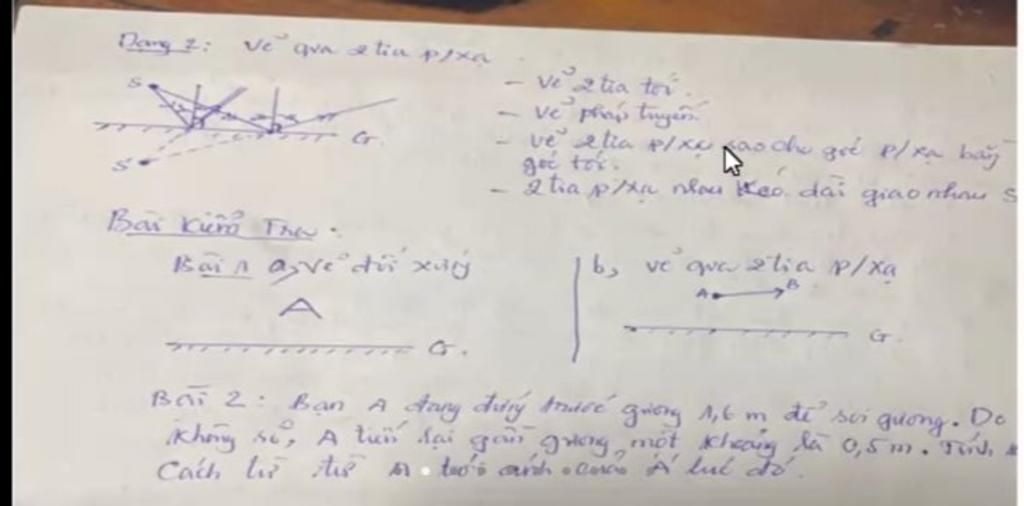 Dạng 2: Vẽ qua 2 tia p/xạ
S
- Vẽ 2 tia tới.
- Vẽ pháp tuyến.
G
- Vẽ 2 tia p/xạ sao cho góc p/xạ bằng
góc tới.
S'
- 2 tia p/xạ nhau kéo dài giao nhau S
Bài kiểm Tra.
Bài 1 a, Vẽ đối xứng
A
G.
b, vẽ qua 2 tia p/xạ
A B
G.
Bài 2: Bạn A đang đứng trước gương 1,6 m để soi gương. Do
không rõ, A tiến lại gần gương một khoảng là 0,5 m. Tính
Cách từ A tới ảnh của A lúc đó.